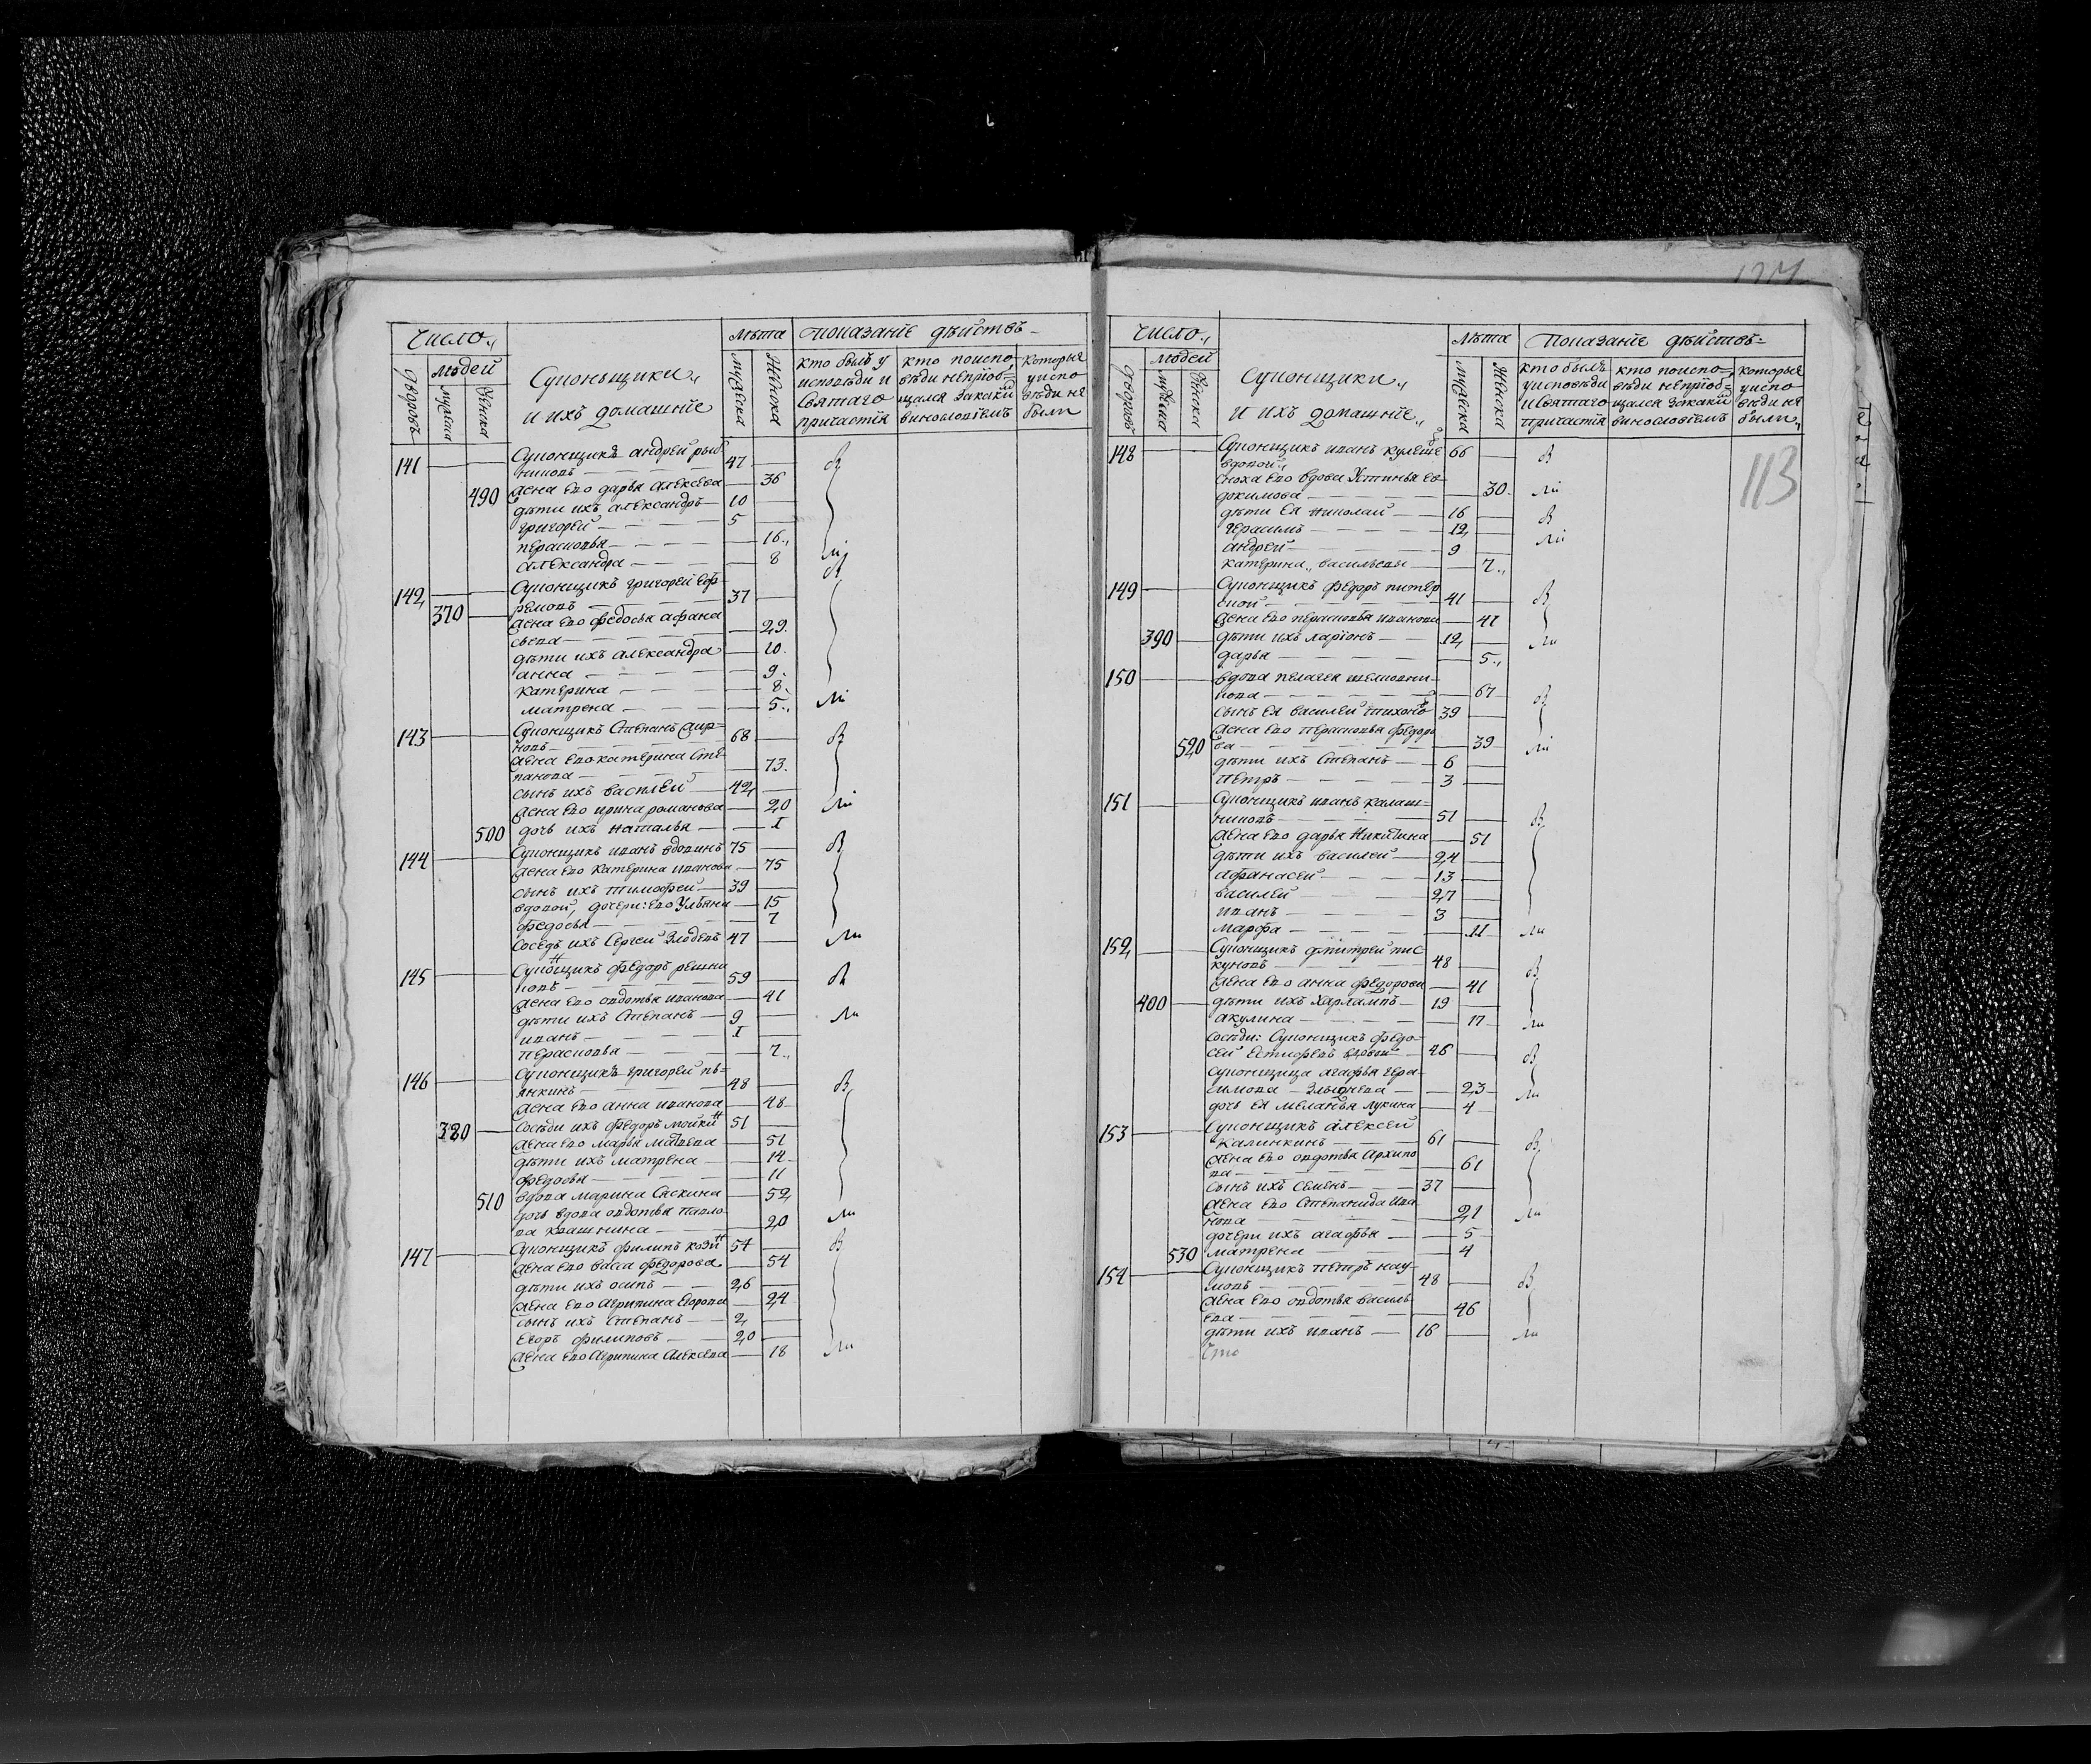 Число
людей
дворовъ
мужска
женска
Суконьщики
и ихъ домашніе
лѣта
мужска
женска
показаніе дѣйствъ
кто былъ у
исповѣди и
святаго
причастія
кто поиспо
вѣди непріоб
щался закакй
винословіемъ
которыя
уиспо
вѣди не
были
141 Суконщикъ андрей рыб
никовъ 47
490 жена его дарья алексѣева 36
дѣти ихъ александръ 10
григорей 5
перасковья 16
александра 8
142 Суконщикъ григорей Еф
ремовъ 37
370 жена его федосья афана
сьева 29
дѣти ихъ александра 10
анна 9
катерина 8
матрена 5
143 Суконщикъ Степанъ Смир
новъ 68
жена его катерина Сте
панова 73
сынъ ихъ василей 42
жена его ирина романова 20
500 дочь ихъ наталья 1
144 Суконщикъ иванъ вдовинъ 75
жена его катерина иванова 75
сынъ ихъ тимофей 39
вдовой, дочери: его Ульяна 15
федосья 7
соседъ ихъ Сергей 47
145 Суконщикъ федоръ решни
ковъ 59
жена его овдотья иванова 41
дѣти ихъ Степанъ 9
иванъ 1
перасковья 7
146 Суконщикъ григорей пь
янкинъ 48
жена его анна иванова 48
380 сосѣди ихъ федоръ 51
жена его марья матвева 51
дѣти ихъ матрена 14
федосья 11
510 вдова марина 52
дочь вдова овдотья павло
ва квашнина 20
147 Суконщикъ филипъ 54
жена его васа федорова 54
дѣти ихъ осипъ 26
жена его Агрипина Егорова 24
сынъ ихъ Степанъ 2
Егоръ филиповъ 20
жена его Агрипина Алексева 18
Число
людей
дворовъ
мужска
женска
Суконщики
и ихъ домашніе
лѣта
мужска
женска
Показаніе дѣйствъ
кто былъ
уисповѣди
исвятаго
причастія
кто поиспо
вѣди непріоб
щался закакй
винословіемъ
которыя
уиспо
вѣди не
были
113
148 Суконщикъ иванъ 66
вдовой
сноха его вдова Устинья Ев
докимова 30
дѣти ея николай 16
герасимъ 12
андрей 9
катерина, васильевы 7
149 Суконщикъ федоръ питер
ской 41
жена его перасковья иванова 47
390 дѣти ихъ ларіонъ 12
дарья 5
150 вдова пелагея шелковни
кова 67
сынъ ея василей тихоновъ 39
жена его перасковья федоро
520 ва 39
дѣти ихъ Степанъ 6
петръ 3
151 Суконщикъ иванъ калаш
никовъ 51
жена его дарья Никитина 51
дѣти ихъ василей 24
афанасей 13
василей 27
иванъ 3
марфа 11
152 Суконщикъ дмитрей пис
куновъ 48
жена его анна федорова 41
400 дѣти ихъ харлампъ 19
акулина 17
сосѣди: Суконщикъ федо
сей Естифеевъ вдовой 46
суконщица агафья гера
симова 23
дочь ея меланья лукина 4
153 Суконщикъ алексей
калинкинъ 61
жена его овдотья Архипо
ва 61
сынъ ихъ семенъ 37
жена его Степанида ива
нова 21
дочери ихъ агафья 5
530 матрена 4
154 Суконщикъ петръ нау
мовъ 48
жена его овдотья василь
ева 46
дѣти ихъ иванъ 16